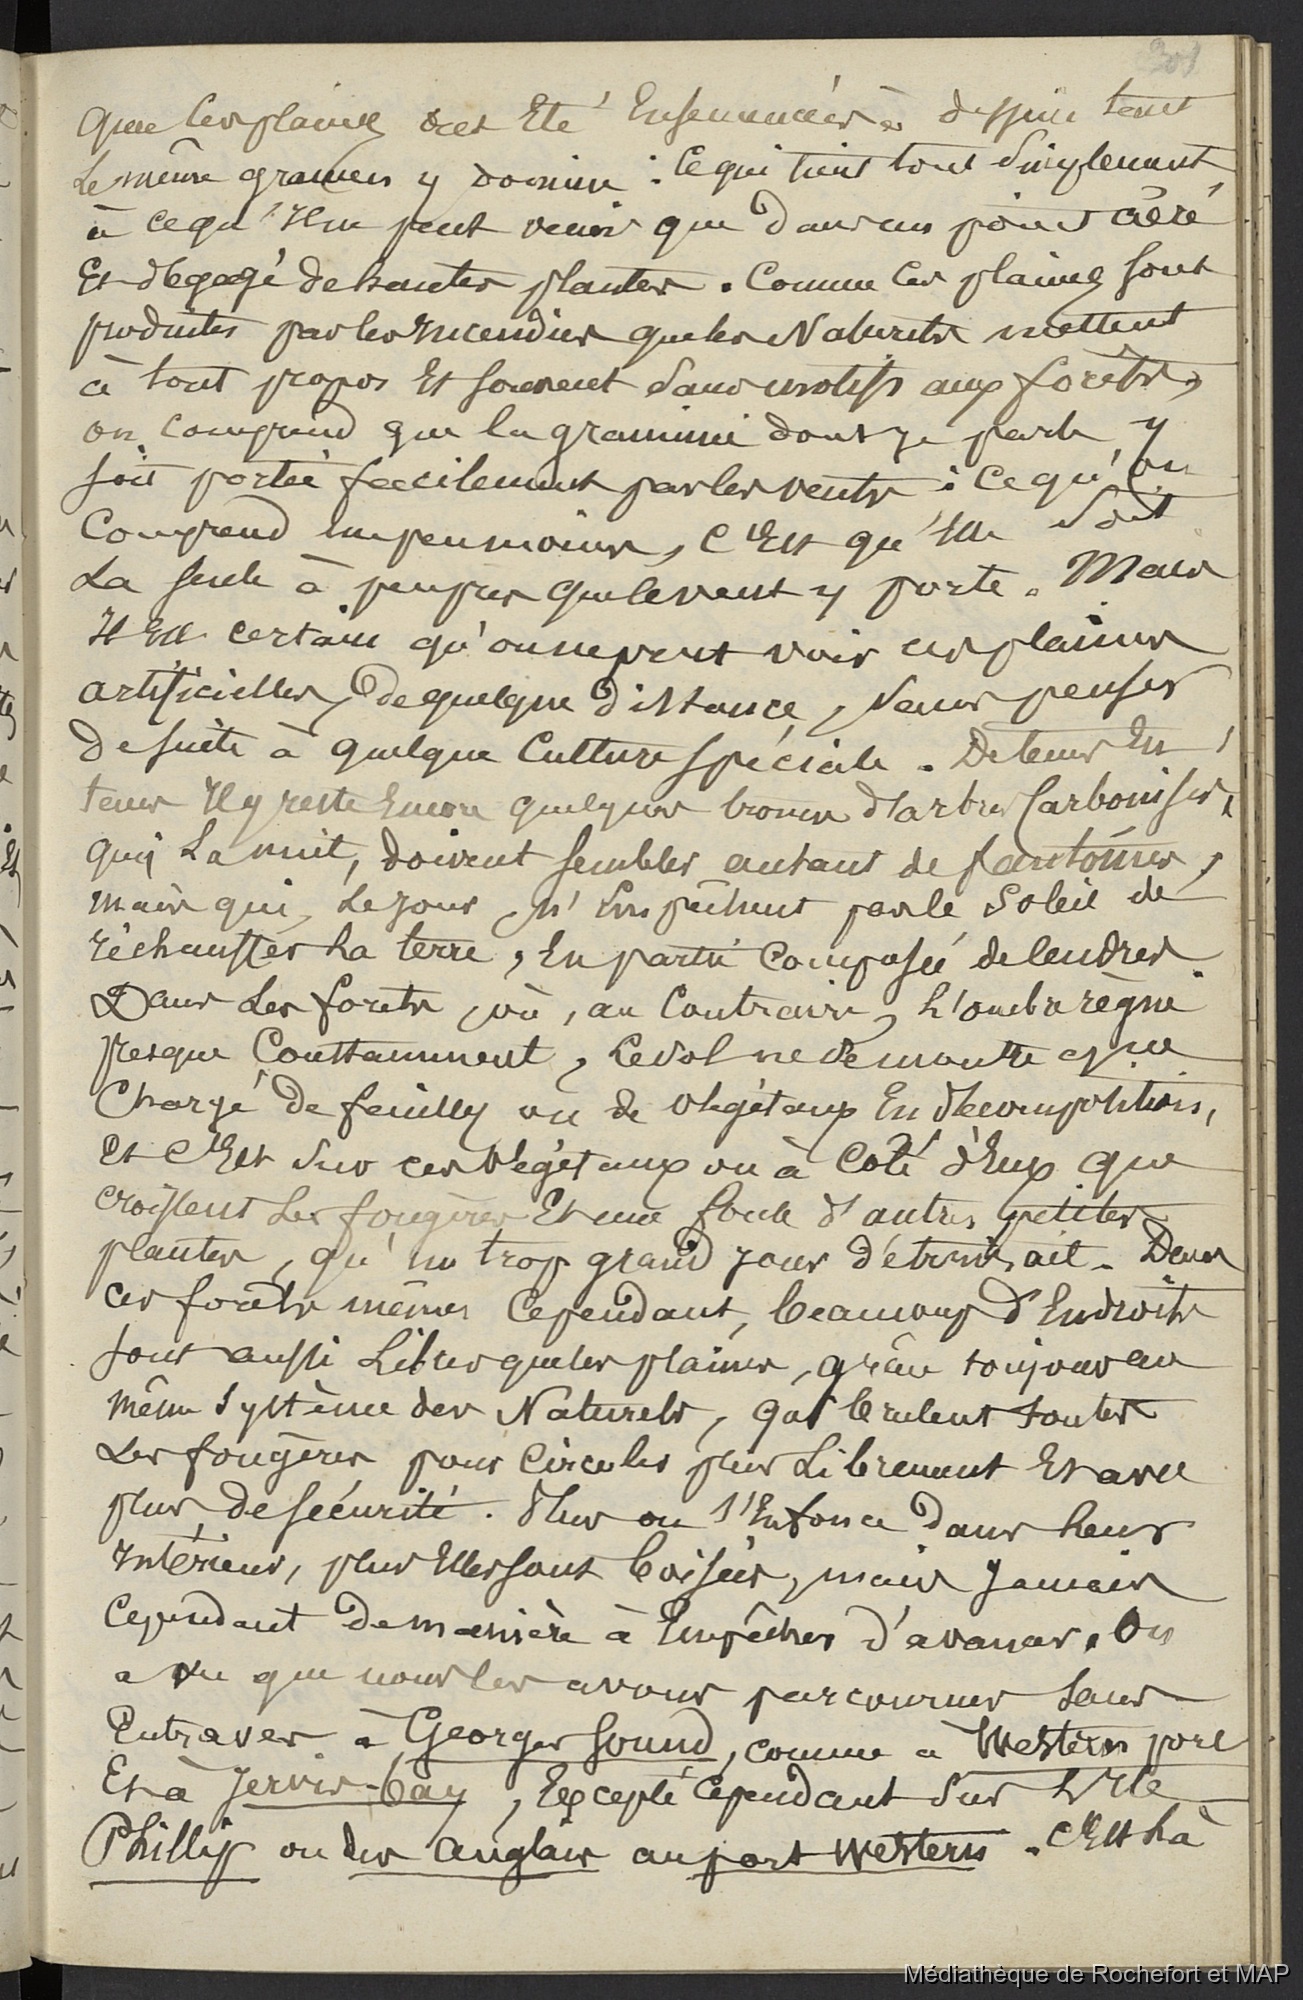 301
que les plaines ont Eté Ensemencées à dessein tant
Le même gramen y domine : Ce qui tient tout simplement
à ce qu'Il ne peut venir que dans un point aéré
Et dégagé de hautes plantes. Comme les plaines sont
produites par les Incendies que les Naturels mettent
à tout propos Et souvent sans motifs aux forêts,
on comprend que la graminé dont je parle y
soit portée facilement par les vents : Ce qu'on
Comprend un peu moins, C'Est qu'Elle soit
La seule à peu près que le vent y porte. Mais
Il Est certain qu'on ne peut voir ces plaines
artificielles, de quelque distance, sans penser
de suite à quelque Culture spéciale. De tems En
tems Il y reste Encore quelques troncs d'arbres Carbonisés,
qui La nuit, doivent sembler autant de fantômes,
mais qui, Le jour, n'Empêchent pas le Soleil de
réchauffer La terre, En partie Composée de Cendres.
Dans Les forêts, où, au Contraire, L'ombre règne
presque Constamment, Le sol ne se montre que
Chargé de feuilles ou de végétaux En décomposition,
Et C'Est sur ces végétaux ou à Coté d'Eux que
croissent Les fougères Et une foule d'autres petites
plantes, qu'un trop grand jour détruirait. Dans
ces forêts mêmes Cependant, beaucoup d'Endroits
sont aussi Libres que les plaines, grâce toujours au
même système des Naturels, qui brulent toutes
Les fougères pour Circuler plus Librement Et avec
plus de sécurité. Plus on s'Enfonce dans Leur
Intérieur, plus Elles sont boisées, mais Jamais
Cependant de manière à Empêcher d'avancer. On
a vu que nous les avons parcourues sans
Entraves à Georges Sound, comme à Western port
Et à Jervis-bay, Excepté Cependant sur L'Ile
Phillip ou des anglais au port Western. C'Est Là
Médiathèque de Rochefort et MAP